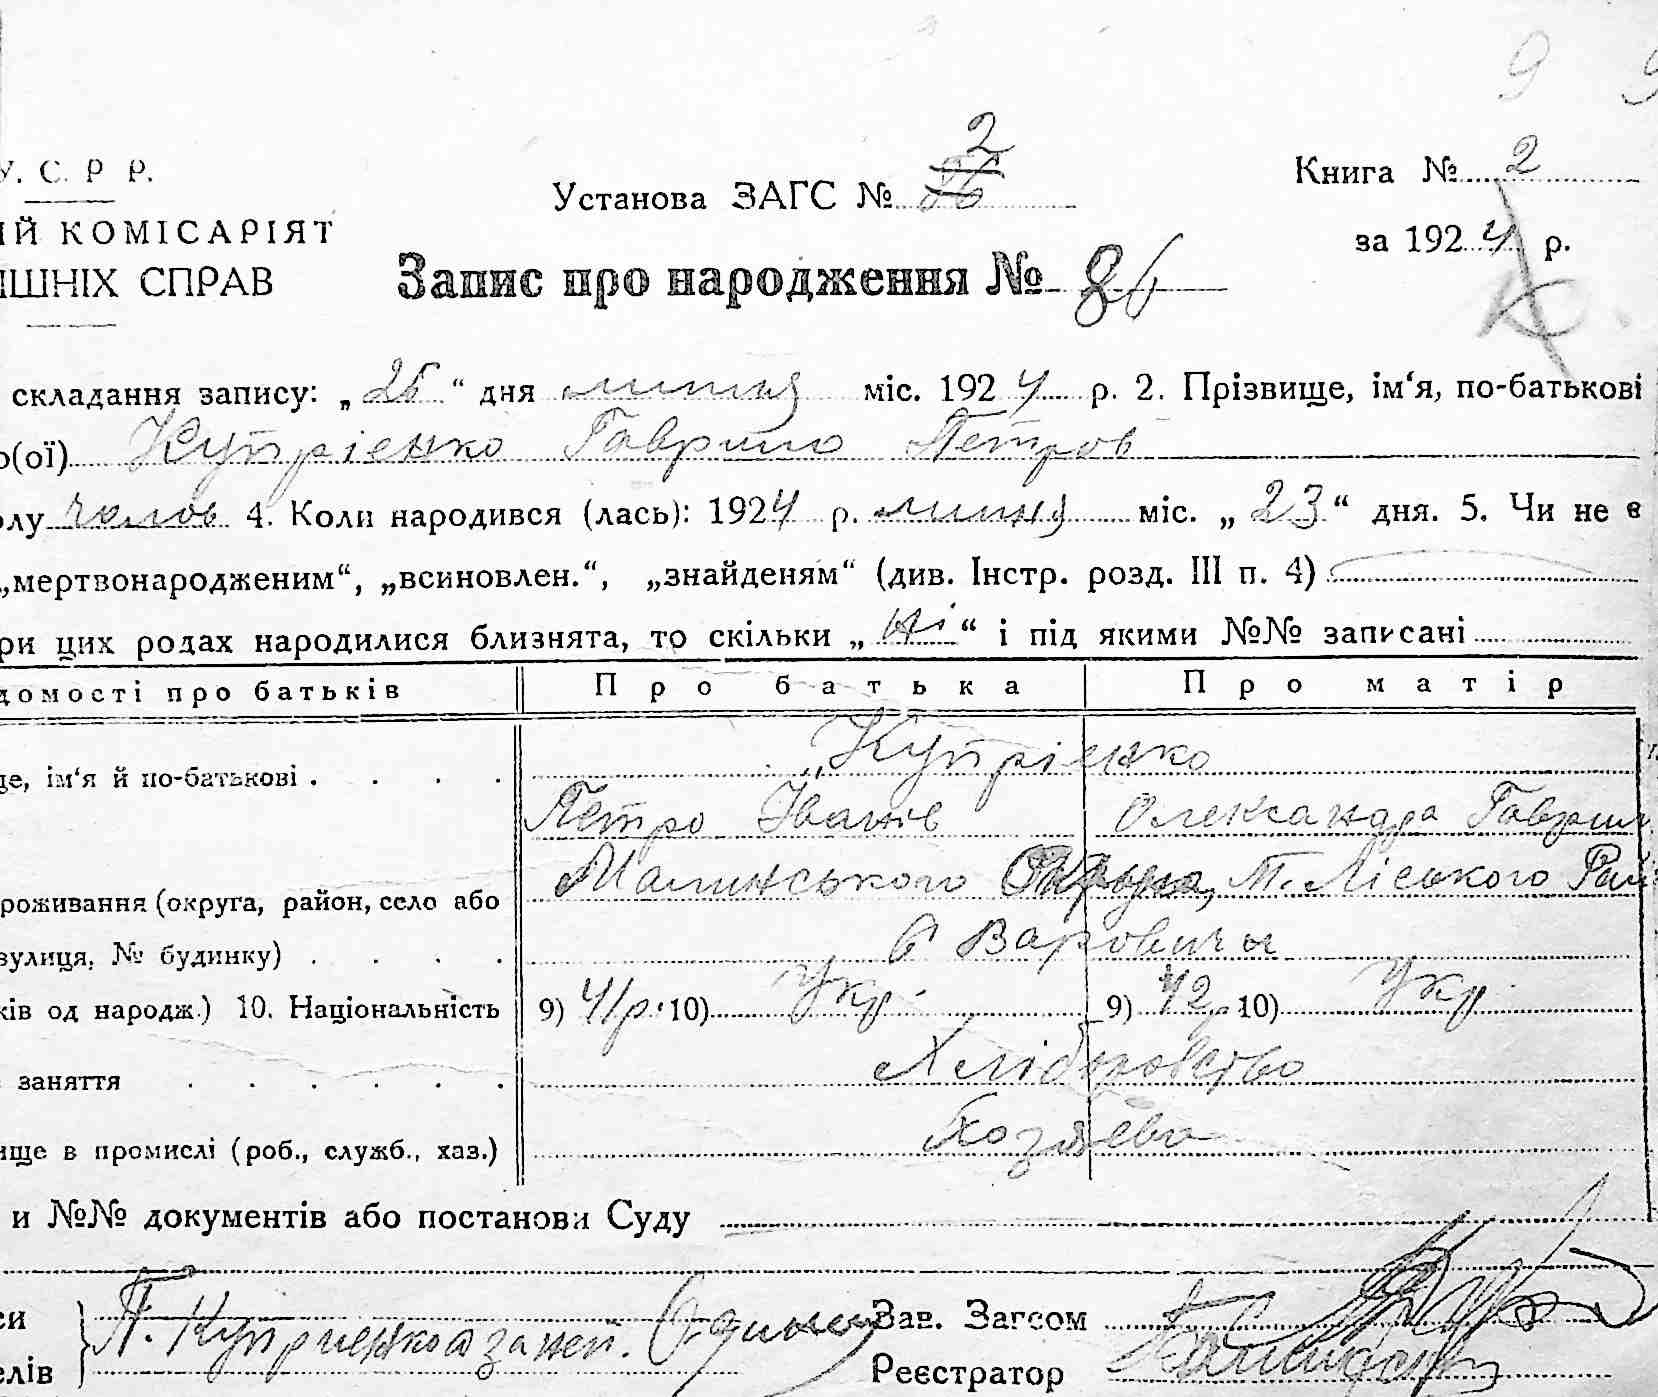 9 9
У. С. Р Р.
2
Установа ЗАГС № 86
Книга № 2
ИЙ КОМІСАРІЯТ
за 1924 р.
ІШНІХ СПРАВ
Запис про народження № 86
складання запису: „25“ дня липня міс. 1924 р. 2. Прізвище, ім‘я, по-батькові
о(ої) Купрієнко Гаврило Петров
олу чолов 4. Коли народився (лась): 1924 р. липня міс. „23“ дня. 5. Чи не є
„мертвонародженим“, „всиновлен.“, „знайденям“ (див. Інстр. розд. III п. 4)
ри цих родах народилися близнята, то скільки „ні“ і під якими №№ записані
домості про батьків Про батька Про матір
Купрієнко
це, ім‘я й по-батькові . . . .
Петро Іванів Олександра Гаврил
Малинського Округа, М. Ліського Рай
роживання (округа, район, село або
С Варовичы
вулиця, № будинку) . . . .
ків од народж.) 10. Національність 9) 41р. 10) Укр. 9) 42р 10) Укр.
Хліборобство
заняття . . . . . .
Хозяева
ище в промислі (роб., служб., хаз.)
и №№ документів або постанови Суду
си П. Куприенко а за неп. Зав. Загсом
елів Реєстратор